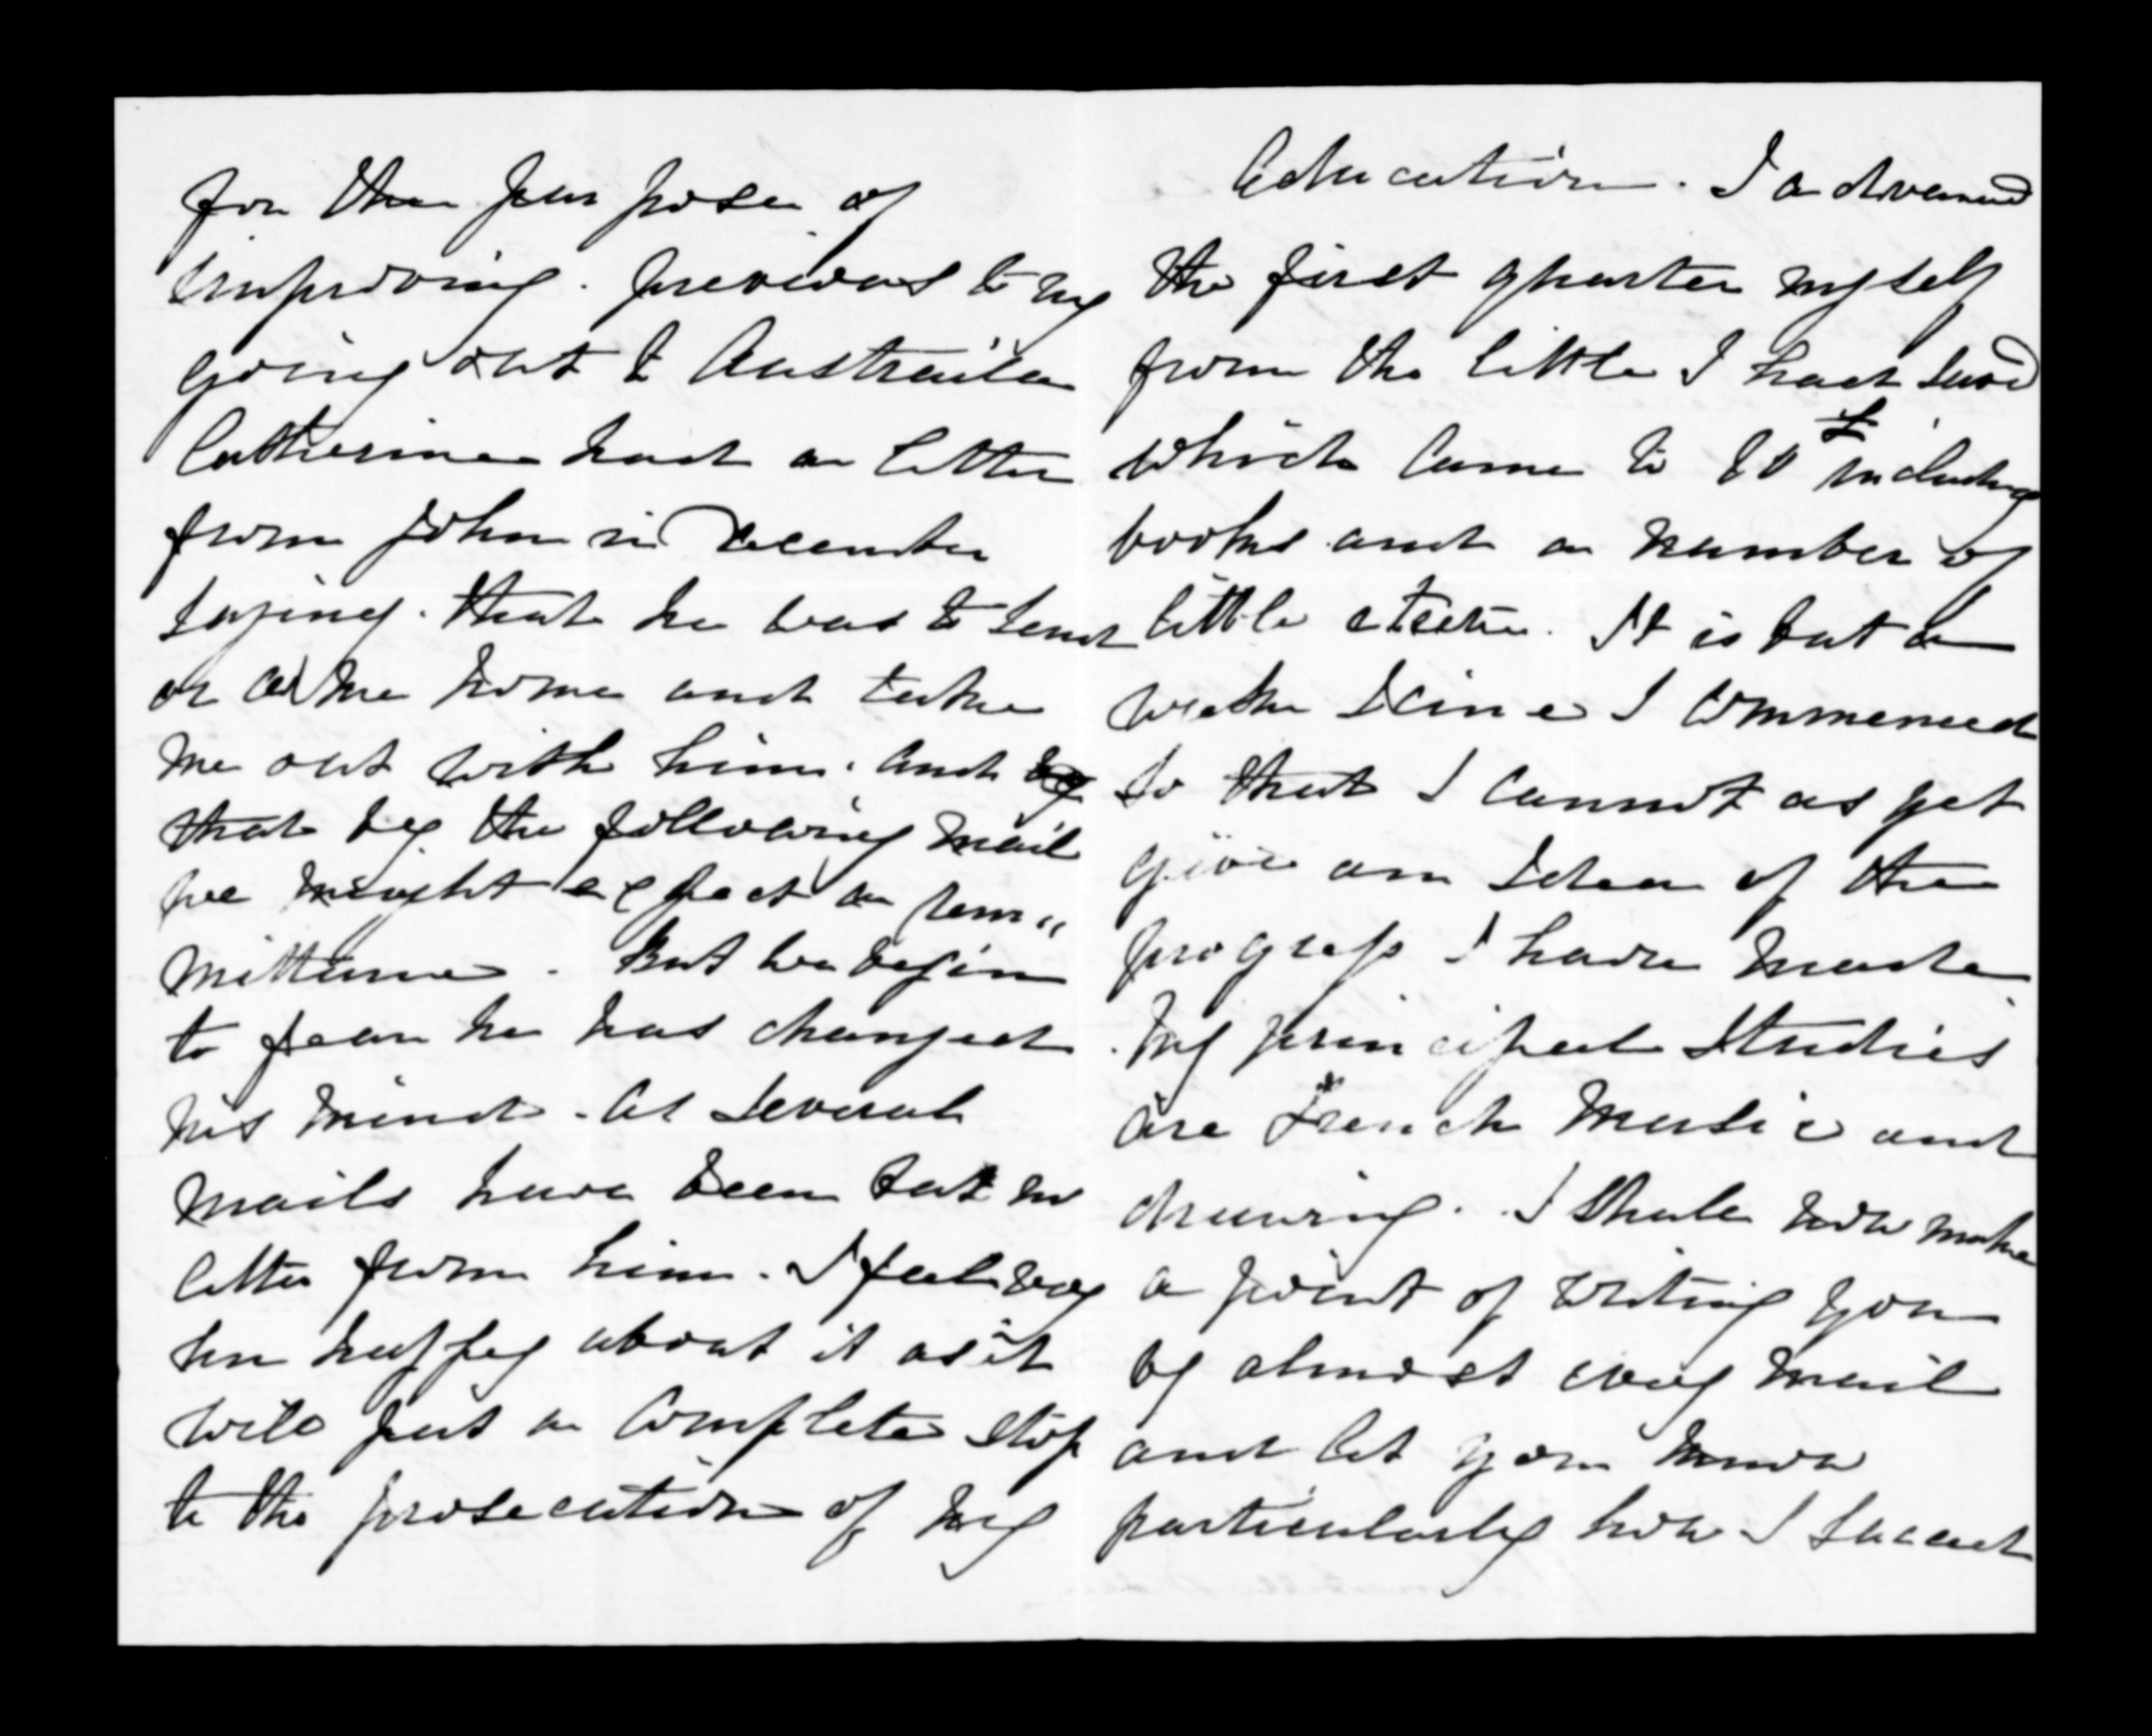 for the purpose of
improving. previous to my
going out to Austraila
Catherine had a letter
from John in December
saying. that he was to send
or come home and take
me out with him. and by
that by the following mail
we might expect a rem"
mittance. But we begin
to fear he has changed
his mind. as several
mails have been but no
letter from him. I feel very
un happy about it as it
will put a complete stop
to the prosecution of my
Education. I advanced
the first quarter myself
from the little I had saved
which came to £ including
books and a number of
little etcetra. It is but a
week since I commenced
so that I cannot as yet
give an Idea of the
progress I have made
My principal Studies
are French Music and
drawing. I shall now make
a point of writing you
by almost every mail
and let you know
particularly how I succeed